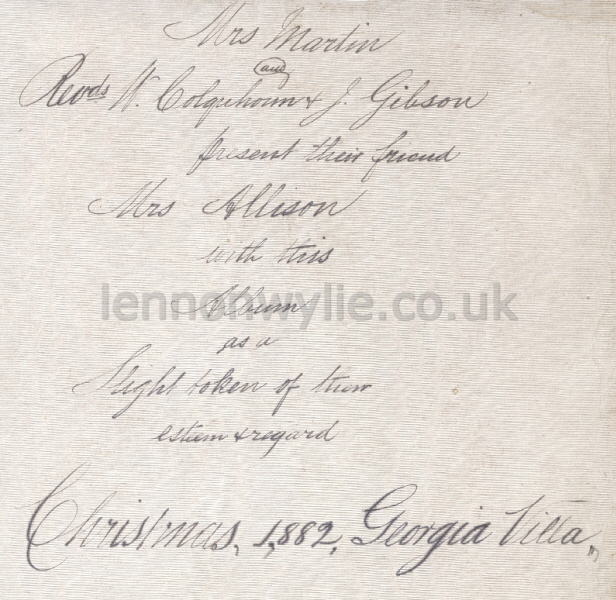 Mrs Martin
and
Revds W. Colquhoun & J. Gibson
present their friend
Mrs Allison
with this
Album
lennonwylie.co.uk
as a
Slight token of their
esteem & regard
Christmas, 1,882, Georgia Villa,,